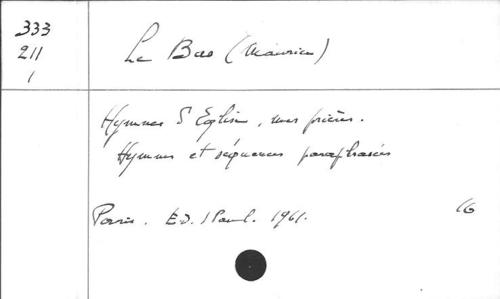 333
211
1
Le Bas (Maurice)
Hymnes d'Eglise, mes prières.
Hymnes et séquences paraphrasées
Paris. Ed. S Paul. 1961. 16